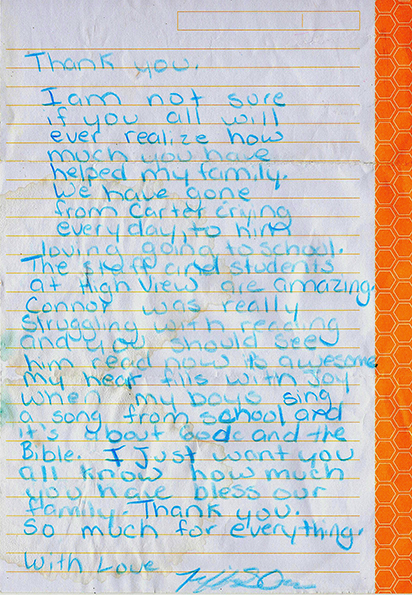 Thank you.
I am not sure
if you all will
ever realize how
much you have
helped my family.
We have gone
from Carter crying
everyday, to him
loving going to school.
The staff and students
at High View are amazing.
Connor was really
Struggling with reading
and you should see
him read now its awesome
my hear fills with Joy
when my boys sing
a song from school and
it's about God and the
Bible. I Just want you
all know how much
you have bless our
family. Thank you.
So much for everything.
With Love